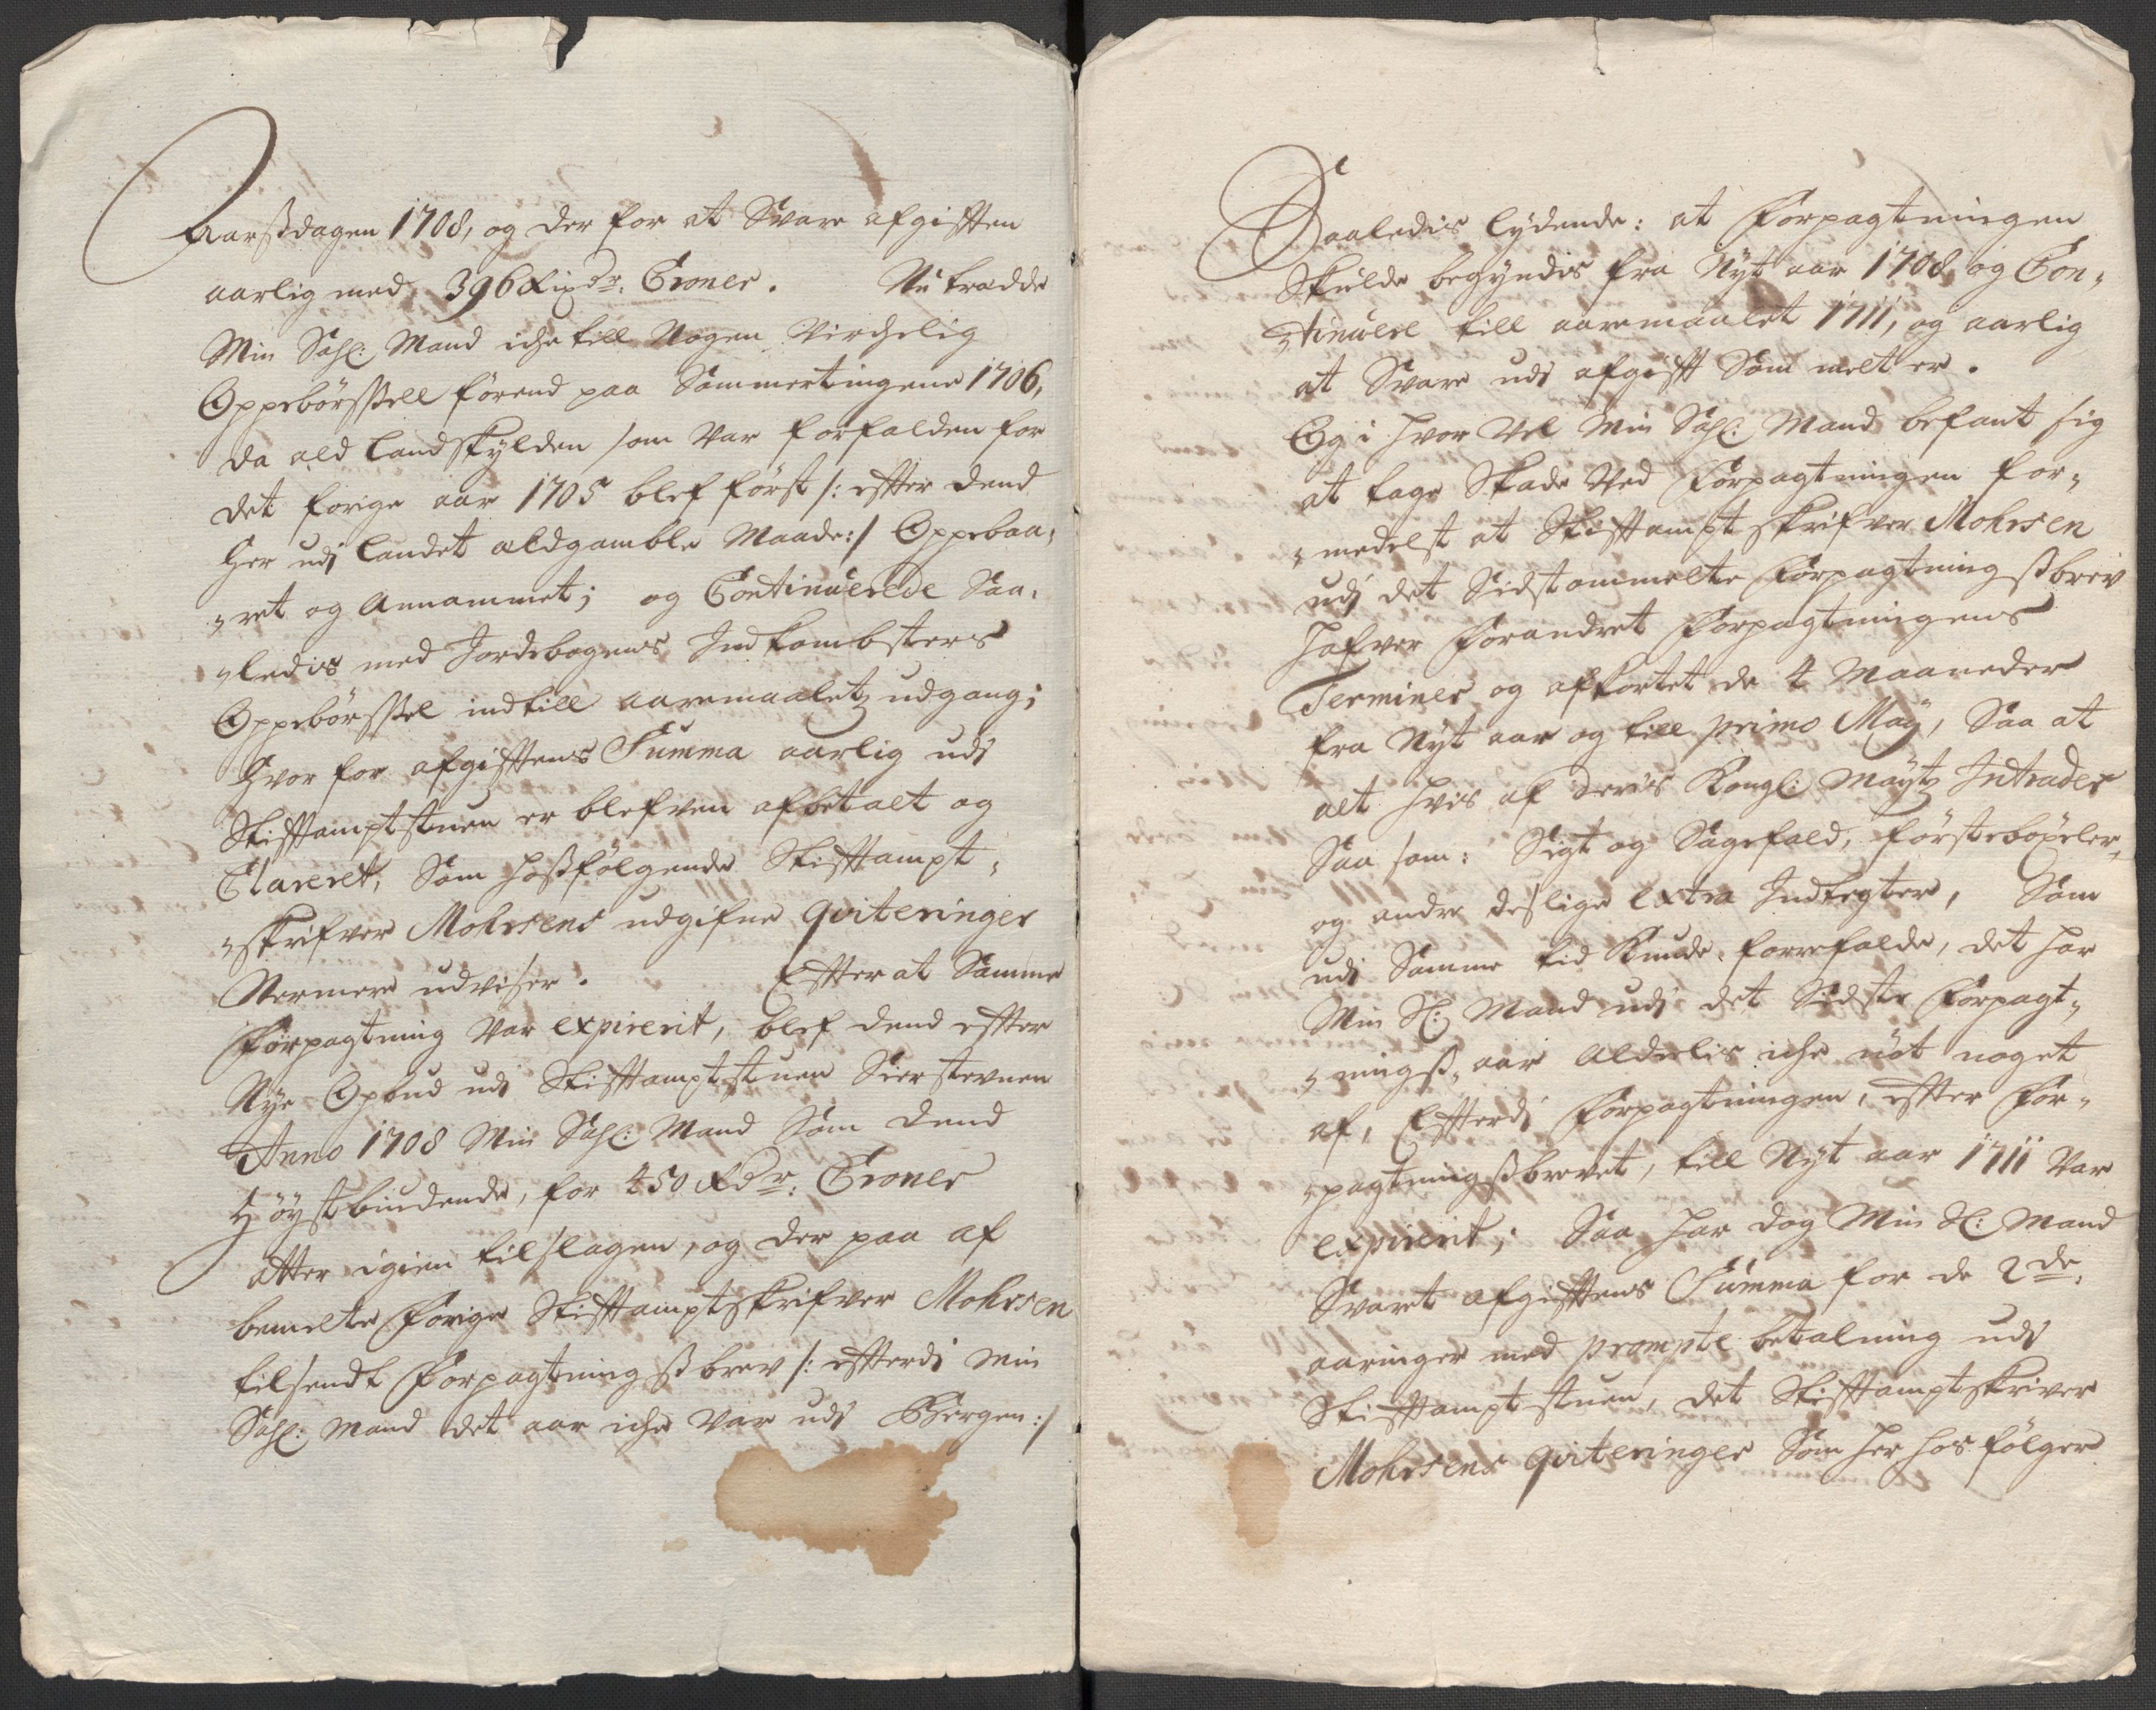 Aarssdagen 1708, og der for at Svare afgifften
aarlig med 396 Rixdr: Croner. Nu tradde
Min Sahl: Mand iche till Nogen Virchelig
Oppebörssell förend paa Sommertingene 1706,
da ald landskylden som Var forfalden for
det forige aar 1705 blef först /: effter dend
her udj landet aldgamble Maade:/ Oppebaa„
„ret og Annammet; og Continuerede Saa„
„ledis med Jordebogens Indkombsters
Oppebörssel indtill aaremaaletz udgang;
hvor for afgifftens Summa aarlig udj
Stifftamptstuen er blefven afbetalt og
Clareret, Som hossfölgende Stifftampt„
„skrifver Mohrsens udgifne qviteringer
Nermere udviser. Effter at Samme
Forpagtning Var expirerit, blef dend effter
Nye Opbud udj Stifftamptstuen Sierstevnen
Anno 1708 Min Sahl: Mand Som dend
Höystbiudende, for 450 Rdr: Croner
atter igien tilslagen, og der paa af
bemelte Forige Stifftamptskrifver Mohrsen
tilsendt Forpagtningssbrev /: efftersj Min
Sahl: Mand det aar iche Var udj Bergen:/
Saaledis lydende: at Forpagtningen
Skulde begyndis fra Nyt aar 1708 og Con„
„tinuere till aaremaalet 1711, og aarlig
at Svare udj afgifft Som melt er.
Og i hvor Vel Min Sahl: Mand befant sig
at tage Skade Ved Forpagtningen for„
„medelst at Stifftamptskrifver Mohrsen
udj det Sidstommelte Forpagtningssbrev
hafver Forandret Forpagtningens
Terminer og afkortet de 4 Maaneder
fra Nyt aar og till primo Maÿ, Saa at
alt hvis af deris Kongl: Maytz Intrader
Saa som: Sigt og Sagefald, försteböxler,
og andre deslige extra Indtegter, Som
udj Samme tid Kunde forrefalde, det har
Min Sl: Mand udj det Sidste Forpagt„
„ningss„ aar Alderlis iche nöt noget
af, Effterdj Forpagtningen, effter For„
„pagtningssbrevet, till Nyt aar 1711 Var
expirerit; Saa har dog Min Sl: Mand
Svaret afgifftens Summa for de 2de
aaringer med prompte betalning udj
Stifftamptstuen, det Stifftamptskriver
Mohrsens qviteringer Som her hos fölger